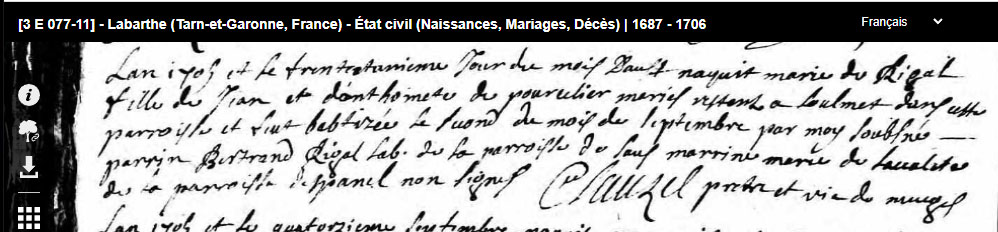 [3 E 077-11] - Labarthe (Tarn-et-Garonne, France) - État civil (Naissances, Mariages, Décès) | 1687 - 1706
Français
Lan 1705 et le trenteetunieme Jour du mois Daust naquit marie de Rigal
fille de Jean et danthoinete de pourcelier mariés restent a soulmet dans cette
parroisse et feut babtizée le second du mois de septembre par moy soubsné
parrin Bertrand Rigal lab. de la parroisse de saus marrine marie de lavalete
de la parroisse despanel non signes Clauzel pretre et vic de
Lan 1705 et le quatorzieme septembre naquit